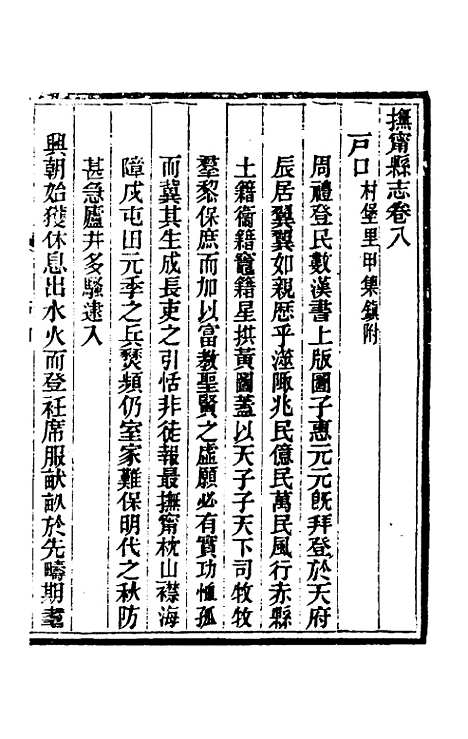 撫甯縣志卷八
戶口 村堡里甲集鎮附
周禮登民數漢書上版圖子惠元元旣拜登於天府
辰居翼翼如親歷乎遐陬兆民億民萬民風行赤縣
土籍衞籍竈籍星拱黃圖蓋以天子子天下司牧牧
羣黎保庶而加以富教聖賢之虛願必有實功恤孤
而冀其生成長吏之引恬非徒報最撫甯枕山襟海
障戍屯田元季之兵焚頻仍室家難保明代之秋防
甚急廬井多騷逮入
興朝始獲休息出水火而登袵席服畎畝於先疇期耄